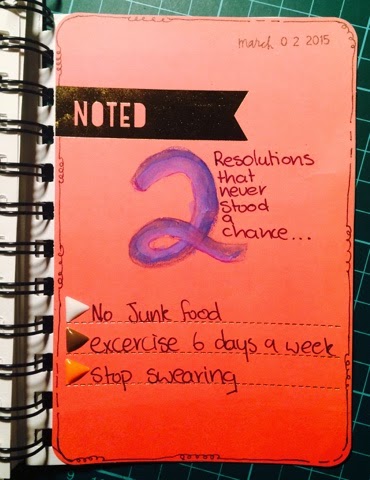 march 02 2015
NOTED
2
Resolutions
that
never
stood
a
chance...
No Junk food
excercise 6 days a week
Stop swearing